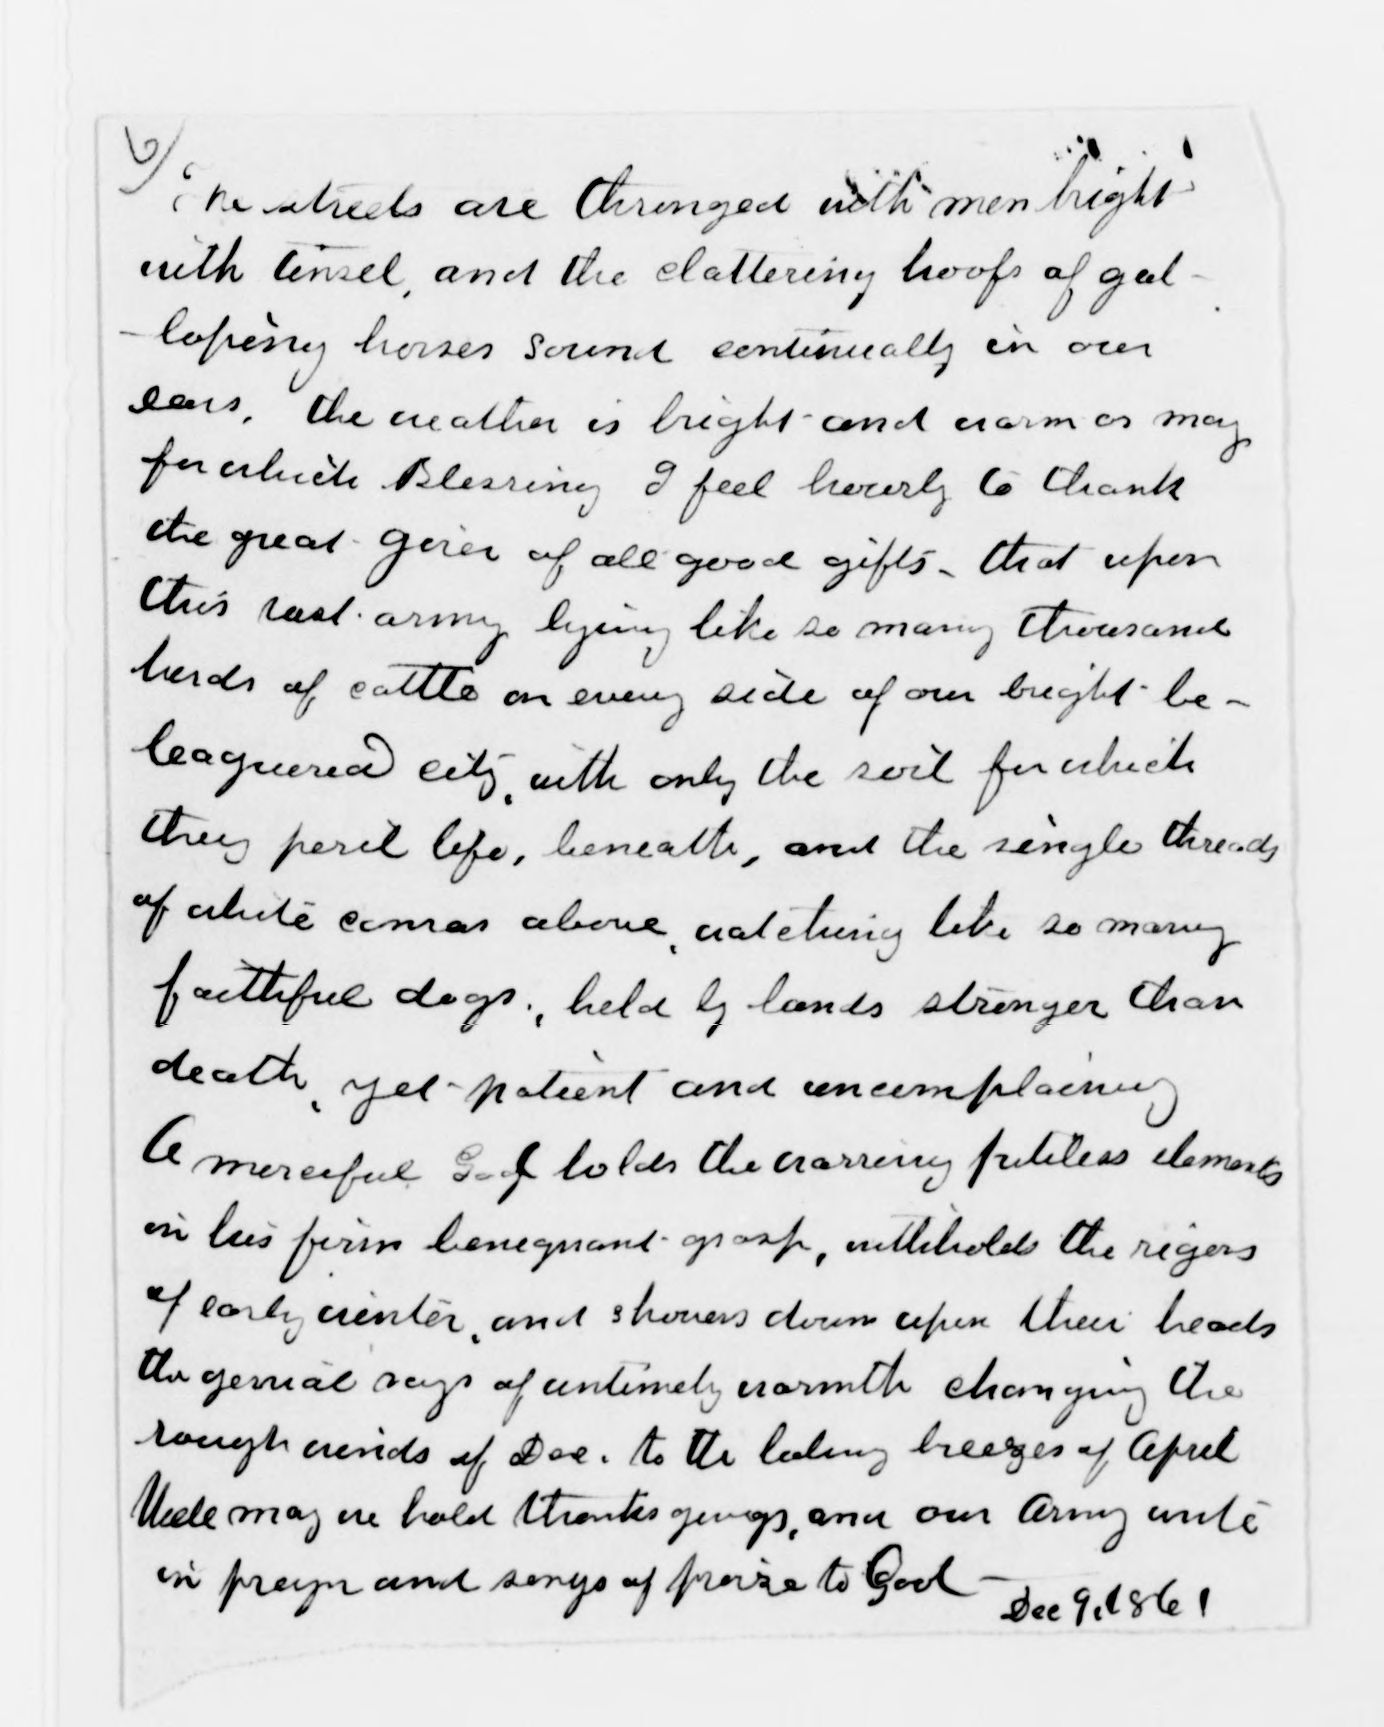 6/
The streets are thronged with men bright
with tinsel, and the clattering hoofs of gal-
-loping horses sound continually in our
ears. The weather is bright and warm as may
for which Blessing I feel hourly to thank
the great Giver of all good gifts - that upon
this vast army lying like so many thousand
herds of cattle on every side of our bright be-
leaguered city, with only the soil for which
they peril life, beneath, and the single threads
of white canvas above, watching like so many
faithful dogs, held by bands stronger than
death, yet patient and uncomplaining
A merciful God holds the warring pitiless elements
in his firm benignant grasp, withholds the rigors
of early winter, and showers down upon their heads
the genial rays of untimely warmth changing the
rough winds of Dec. to the balmy breezes of April
Well may we hold thanksgivings, and our Army unite
in prayer and songs of praise to God -
Dec 9, 1861